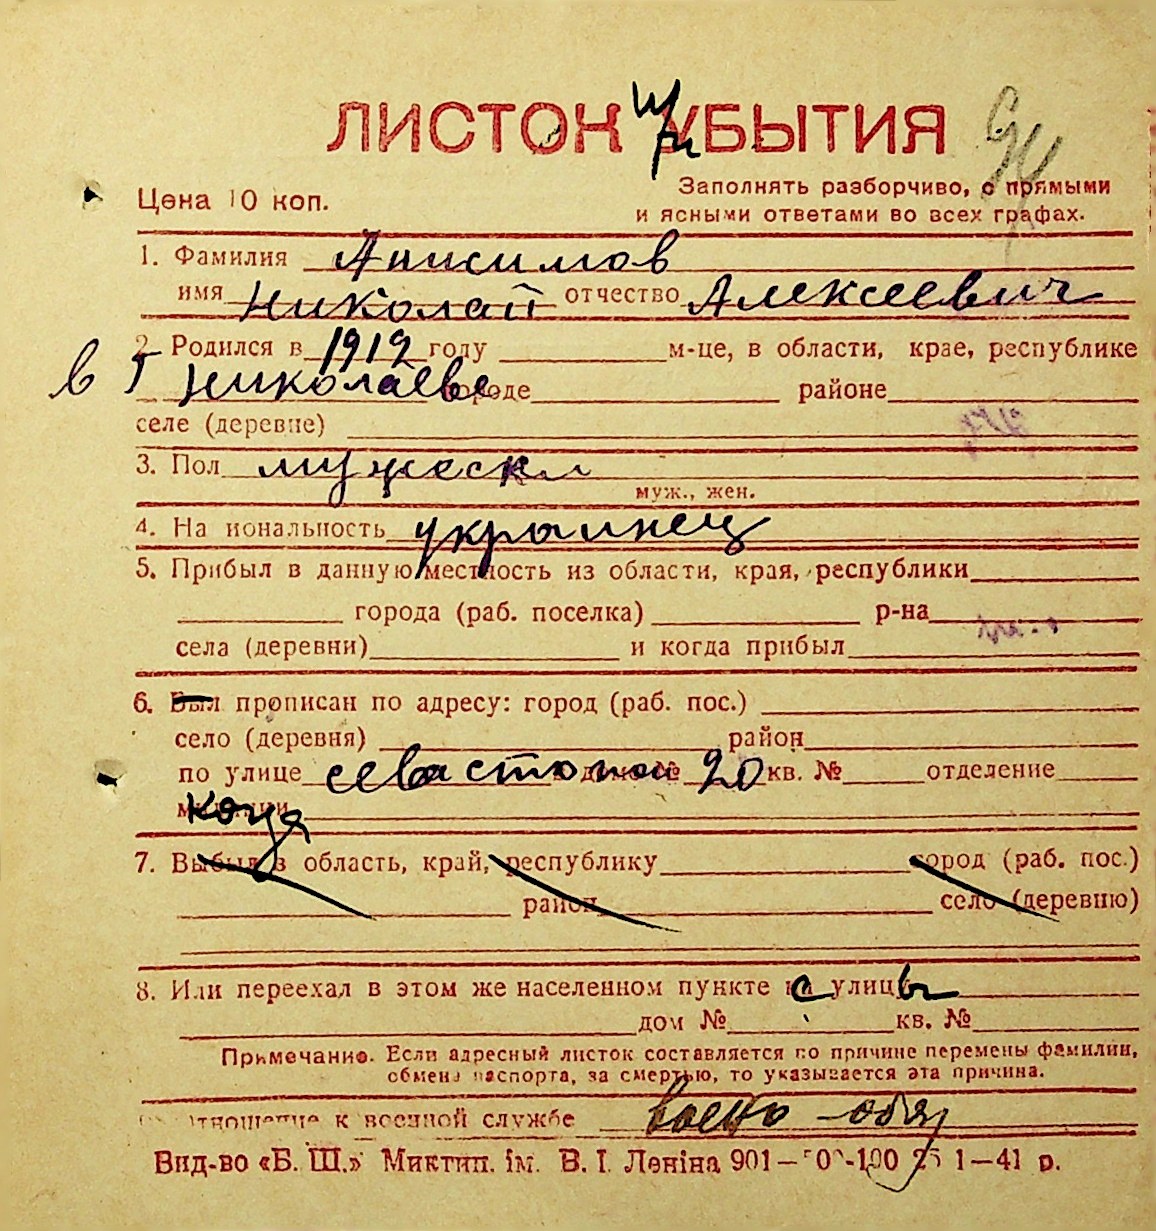 ЛИСТОК УБЫТИЯ
При
Цена 10 коп.
Заполнять разборчиво, с прямыми
и ясными ответами во всех графах.
1. Фамилия Анисимов
имя Николай отчество Алексеевич
2. Родился в 1919 году м-це, в области, крае, республике
в г Николаеве городе районе
селе (деревне)
3. Пол мужски
муж., жен.
4. На иональность украинец
5. Прибыл в данную местность из области, края, республики
города (раб. поселка) р-на
села (деревни) и когда прибыл
6. Был прописан по адресу: город (раб. пос.)
село (деревня) район
по улице севастопол дом № 20 кв. № отделение
милиции
когда
7. Выбыл в область, край, республику город (раб. пос.)
район село (деревню)
8. Или переехал в этом же населенном пункте с улицы
дом № кв. №
Примечание. Если адресный листок составляется по причине перемены фамилии,
обмена паспорта, за смертью, то указывается эта причина.
отношение к военной службе воено-обяз
Вид-во «Б. Ш.» Миктип. ім. В. І. Леніна 901— 1—41 р.